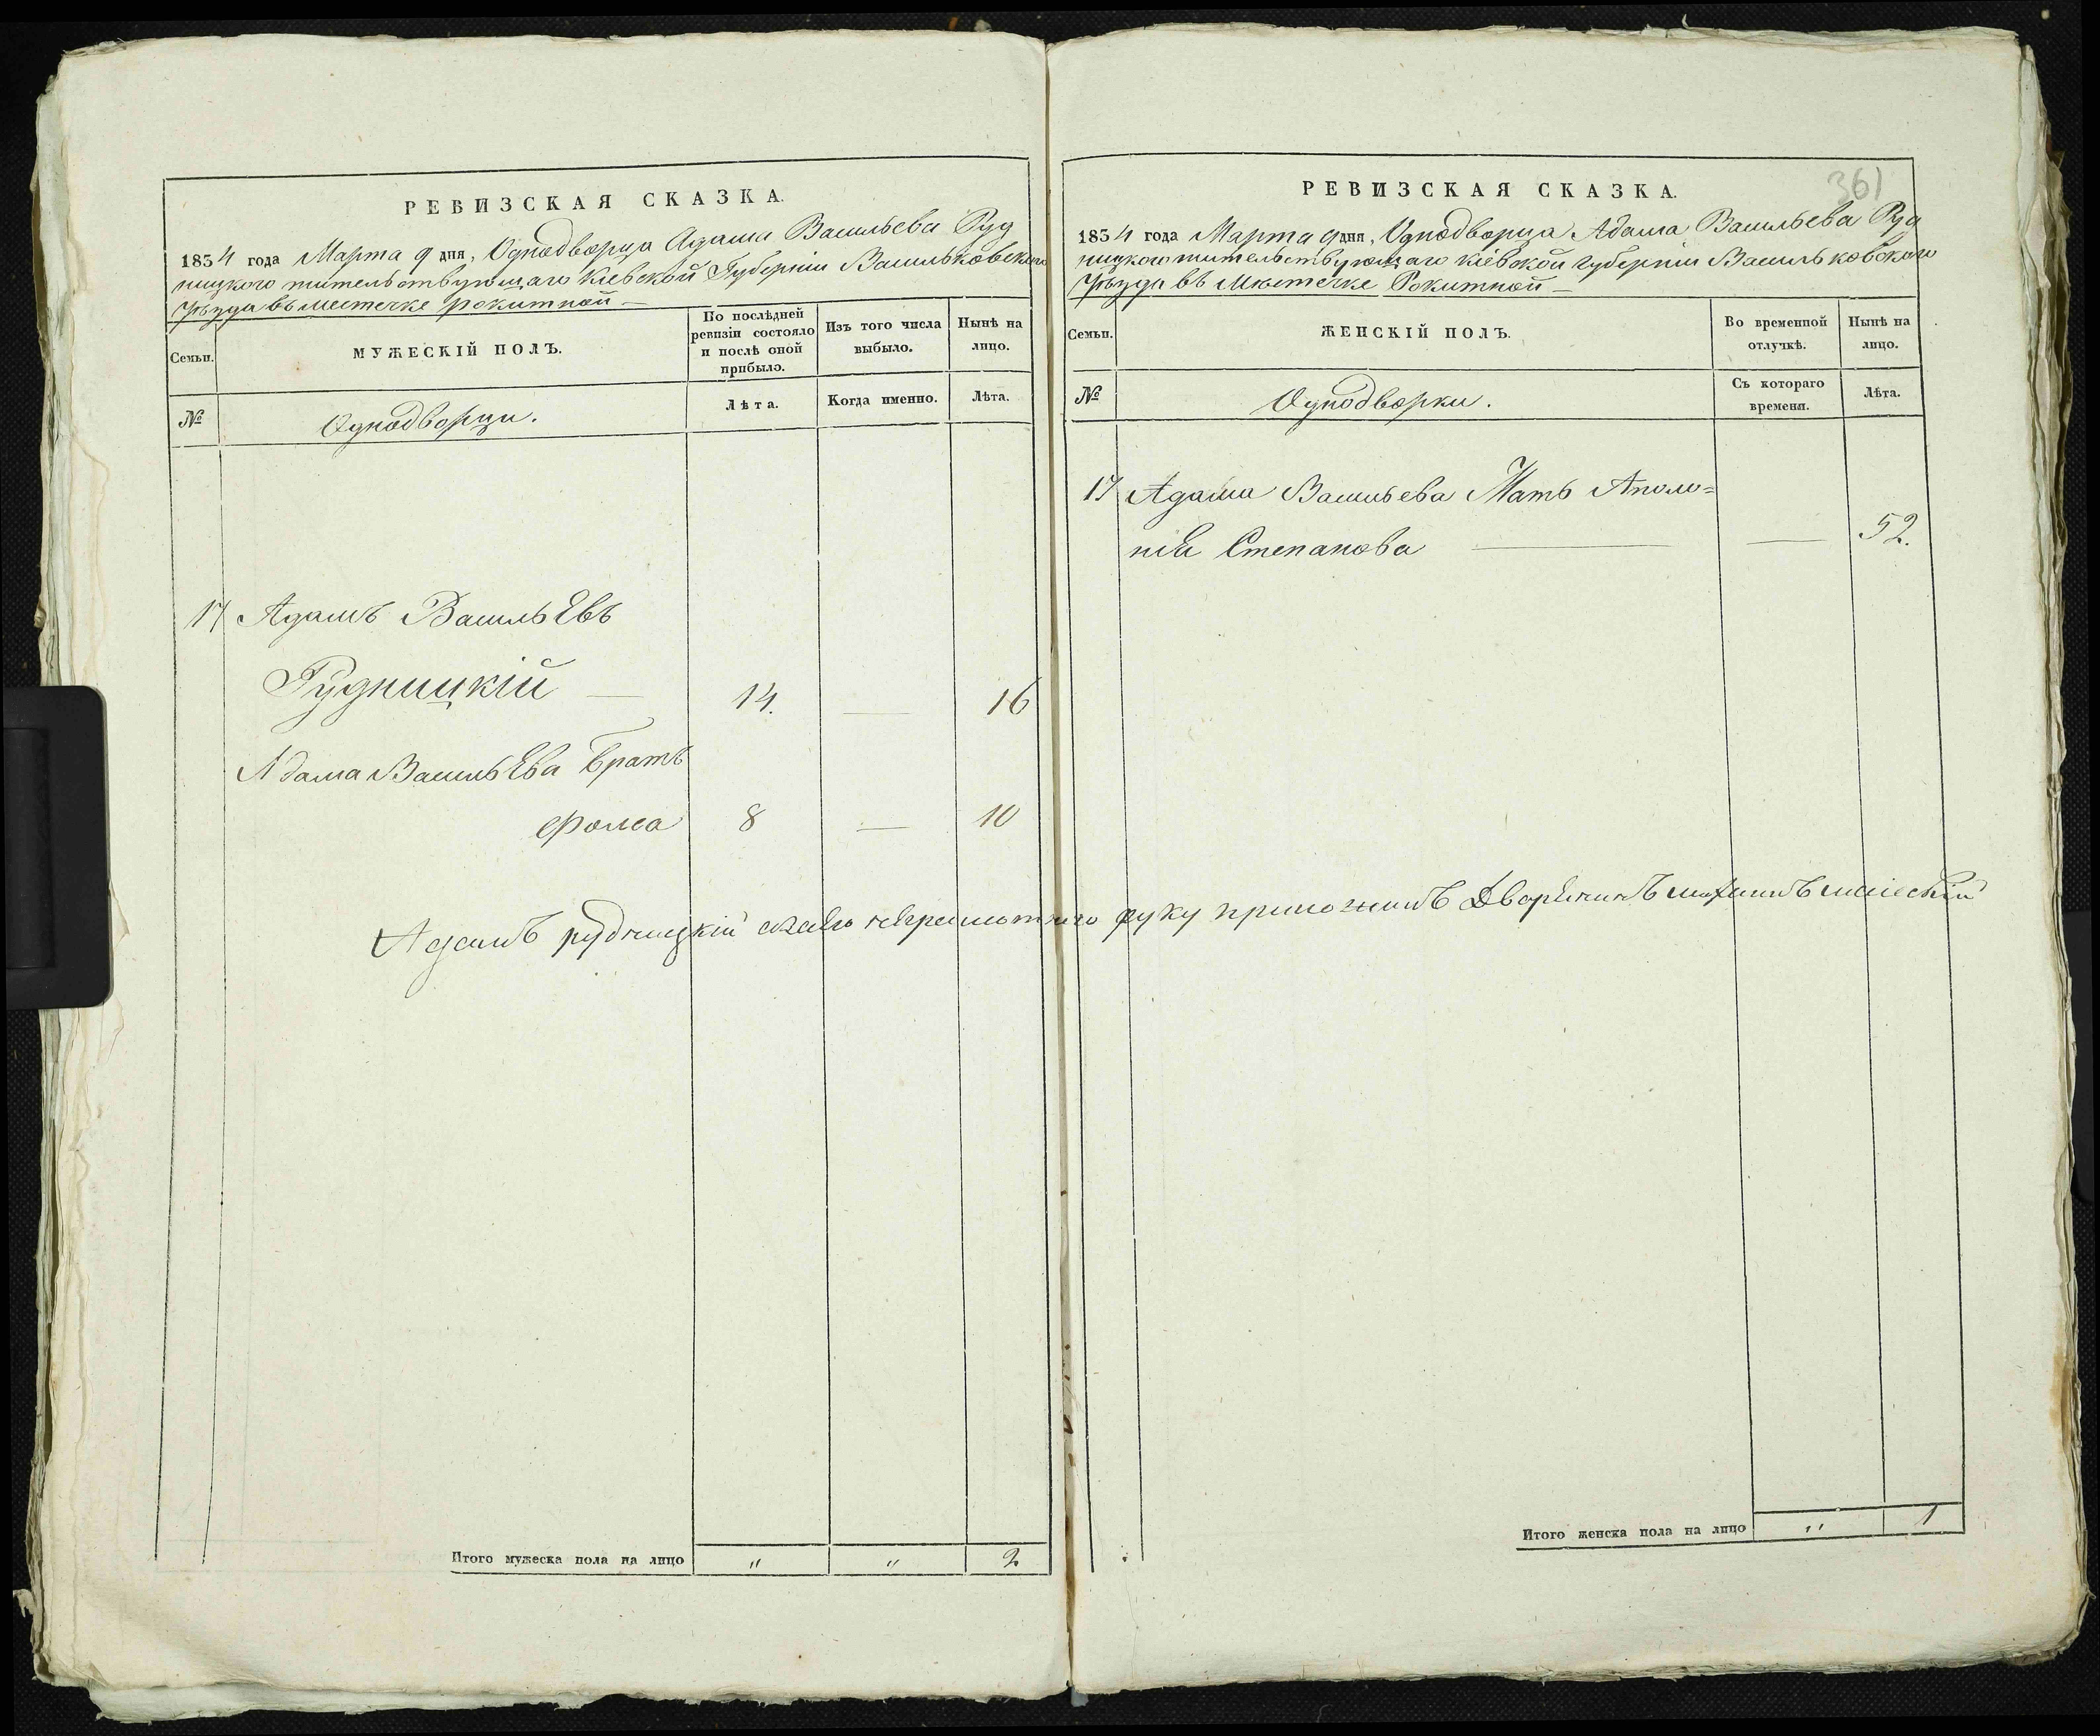 РЕВИЗСКАЯ СКАЗКА.
1834 года Марта 9 дня, Однодворца Адама Васильева Руд
ницкого жительствующаго Кіевской Губерніи Васильковского
Уѣзда въ местечке рокитной —
Семьи.
МУЖЕСКІЙ ПОЛЪ.
По послѣдней
ревизіи состояло
и послѣ оной
прибыло.
Изъ того числа
выбыло.
Нынѣ на
лицо.
№
Однодворци.
Лѣта.
Когда именно.
Лѣта.
17 Адамъ Васильевъ
Рудницкій — 14. — 16
Адама Васильева братъ
Фома 8 — 10
Итого мужеска пола на лицо " " 2
361
РЕВИЗСКАЯ СКАЗКА.
1834 года Марта 9 дня, Однодворца Адама Васильева Руд
ницкого жительствующаго Кіевской губерніи Васильковского
Уѣзда въ Мѣстечке Рокитной —
Семьи.
ЖЕНСКІЙ ПОЛЪ.
Во временной
отлучкѣ.
Нынѣ на
лицо.
№
Однодворки.
Съ котораго
времени.
Лѣта.
17 Адама Васильева Мать Аполо=
нія Степанова — — 52.
Адамъ рудницкій неграмотнаго руку приложилъ Дворянинъ
Итого женска пола на лицо " 1